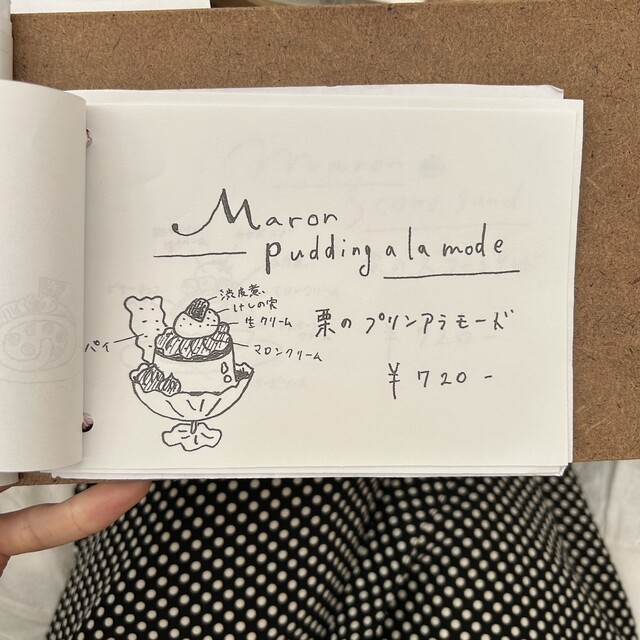 Maron
pudding a la mode
渋皮煮
けしの実
生クリーム
マロンクリーム
パイ
栗の プリンアラモード
¥720-